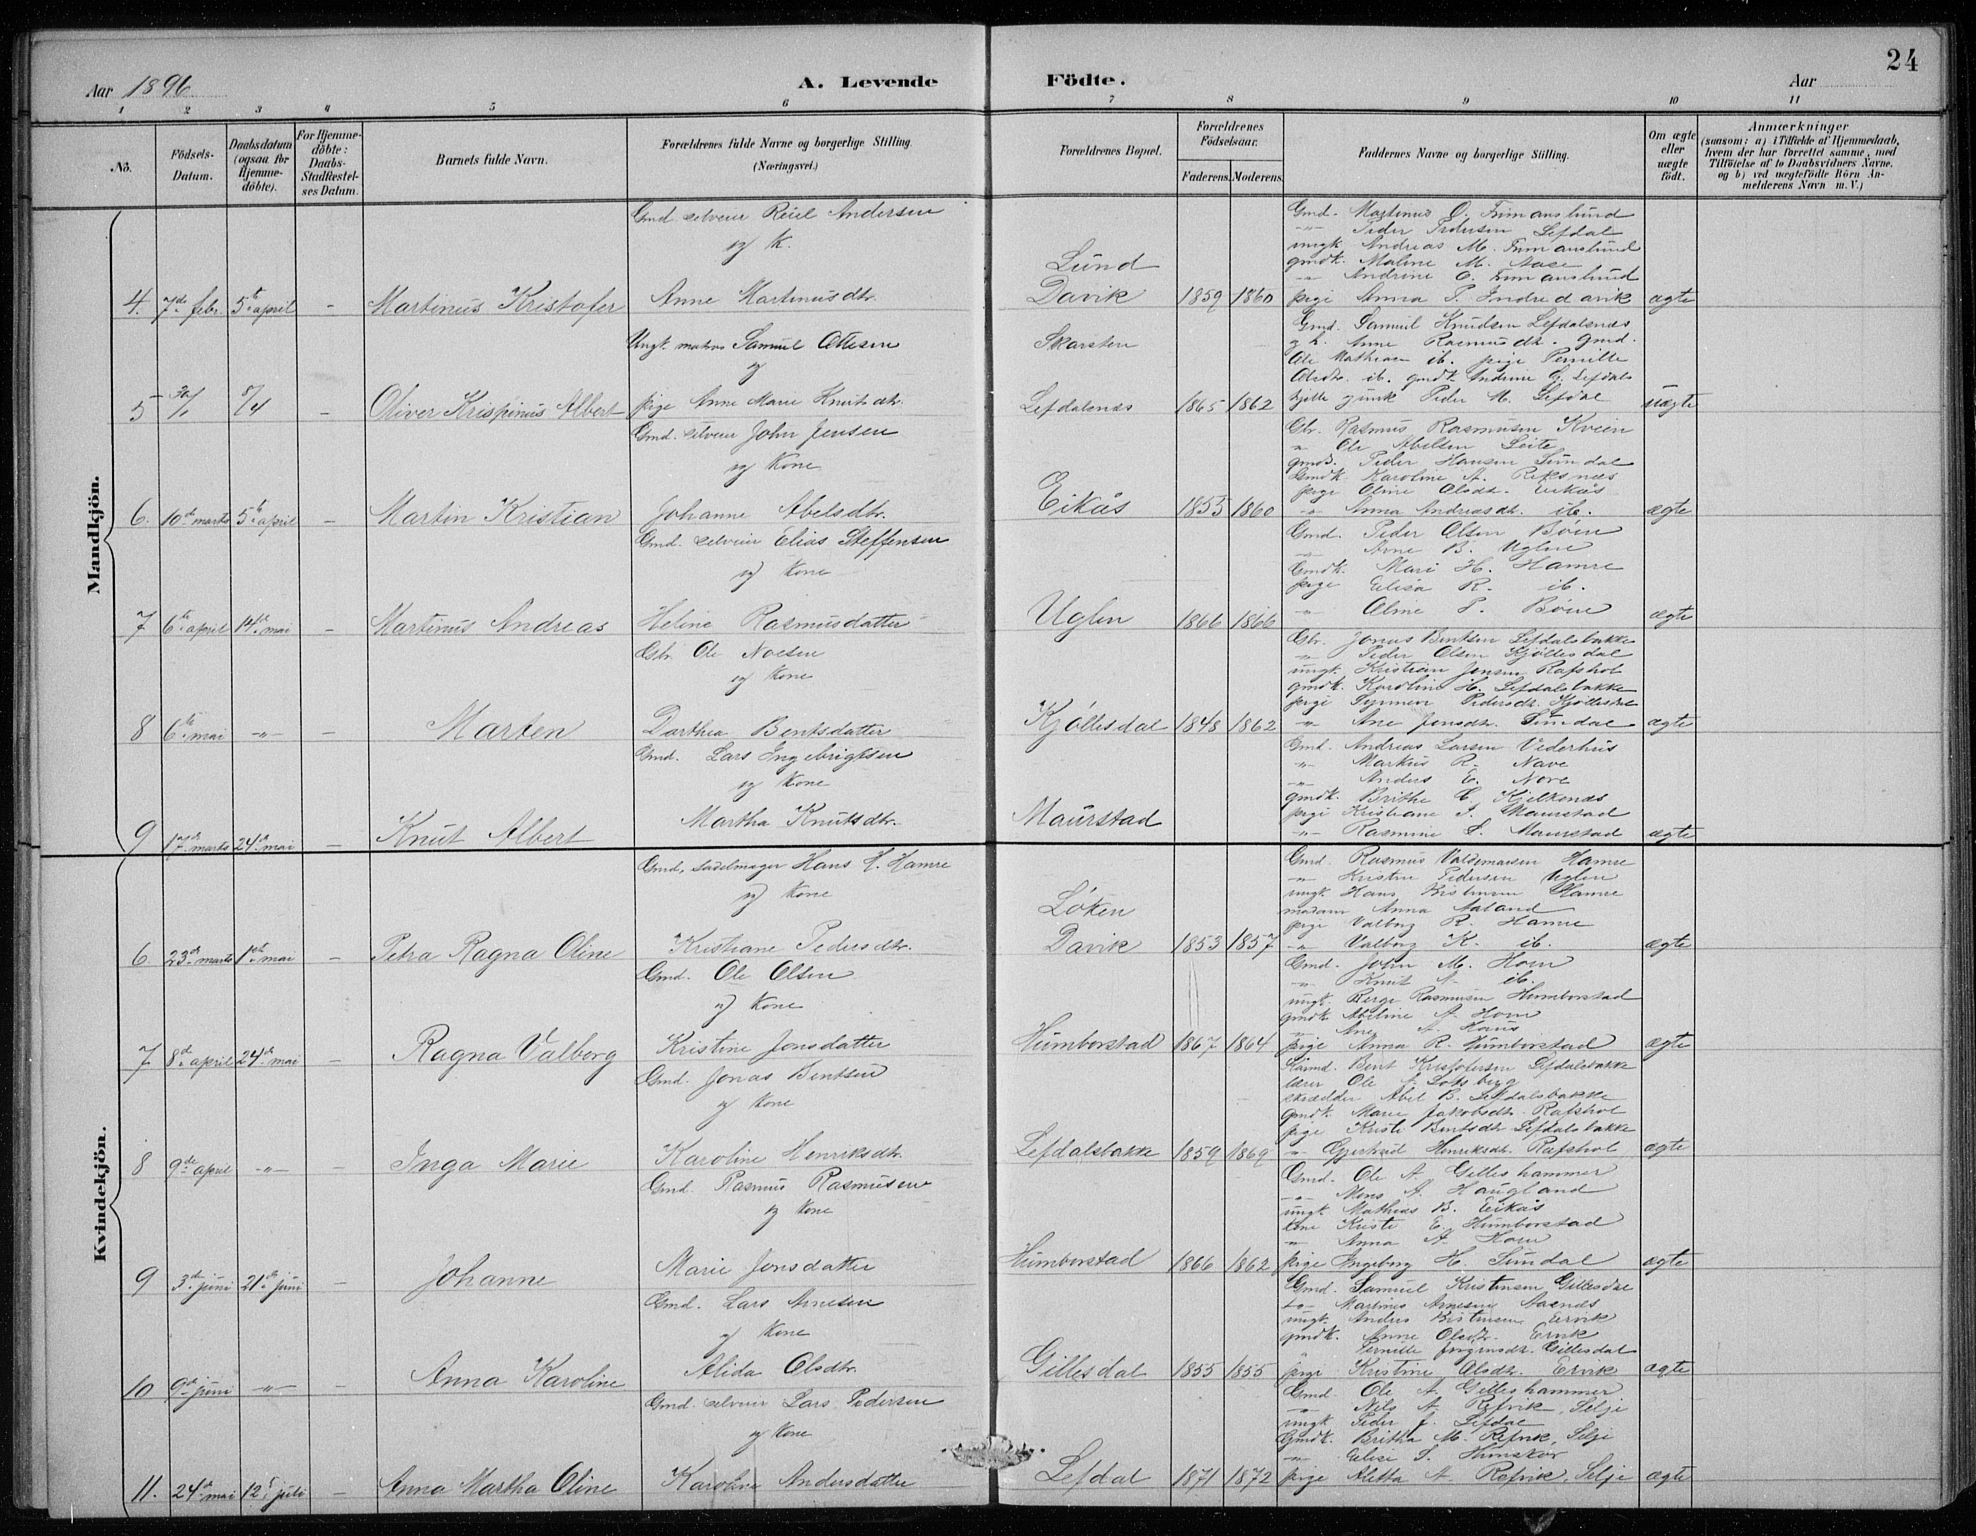 24
Aar 1896 A. Levende Födte. Aar
1 2 3 4 5 6 7 8 9 10 11
No. Födsels-Datum. Daabsdatum (ogsaa for Hjemme-döbte). For Hjemme-döbte: Daabs-Stadfæstel-ses Datum. Barnets fulde Navn. Forældrenes fulde Navne og borgerlige Stilling. (Næringsvei.) Forældrenes Bopæl. Forældrenes Födselsaar. Faderens. Moderens. Faddernes Navne og borgerlige Stilling. Om ægte eller uægte födt. Anmærkninger (saasom: a) i Tilfælde af Hjemmedaab, hvem der har forrettet samme, med Tilföielse af to Daabsvidners Navne, og b) ved uægtefödte Börn An-melderens Navn m. V.)
Mandkjön.
Gmd. selveier Reiel Andersen
og K.
4. 7de febr. 5te april - Martinus Kristofer Anne Martinusdtr. Lund Davik 1859 1860 ægte
Gmd. Martinus O. Frimanslund
-"- Peder Pedersen Lefdal
ungk. Andreas M. Frimanslund
gmdk. Maline M. Aase
-"- Andrine O. Frimanslund
pige Anna P. Indredavik
Ungk. matros Samuel Ottesen
og
5 8/4 - Oliver Krispinus Albert pige Anne Marie Knutsdtr. Skarsten Lefdalsnæs 1865 1862 uægte
Gmd. Samuel Knudsen Lefdalsnæs
Anne Rasmusdtr. gmd.
Ole Mathiasen ib. pige Pernille
Olsdtr. ib. gmdk. Andrine G. Lefdals
Peder M. Lefdal
Gmd. selveier John Jensen
og Kone
6. 10de marts 5te april - Martin Kristian Johanne Abelsdtr. Eikås 1855 1860 ægte
Gbr. Rasmus Rasmusen Kveen
" Ole Abelsen Leite
gmd. Peder Hansen Sundal
Gmdk. Karoline A. Reksnæs
pige Oline Olsdtr. Eikås
-"- Anna Andreasdtr. ib.
Gmd. selveier Elias Steffensen
og Kone
7 6te april 14de mai - Martinus Andreas Heline Rasmusdatter Uglen 1866 1866 ægte
Gmd. Peder Olsen Böen
-"- Arne B. Uglen
Gmdk. Mari H. Hamre
pige Elisa R. ib.
-"- Oline P. Böen
Gbr. Ole Noesen
og Kone
8 6te mai -"- - Marten Dorthea Bentsdatter Kjöllesdal 1848 1862 ægte
Gbr. Jonas Bentsen Lefdalsbakke
-"- Peder Olsen Kjöllesdal
ungk. Kristian Jonsen Rafshol
gmdk. Karoline H. Lefdalsbakke
pige Synneve Pedersdtr. Kjöllesdal
-"- Ane Jonsdtr. Sundal
Gmd. Lars Ingebrigtsen
og Kone
9 17de marts 24de mai - Knut Albert Martha Knutsdtr. Maurstad ægte
Gmd. Andreas Larsen Vederhus
-"- Markus R. Nave
-"- Anders E. Nore
gmdk. Brithe E. Kjelkenæs
pige Kristiane I. Maurstad
-"- Rasmine S. Maurstad
Kvindekjön.
Gmd. Sadelmager Hans H. Hamre
og Kone
6 23de marts 1ste mai - Petra Ragna Oline Kristiane Pedersdtr. Löken Davik 1853 1857 ægte
Gmd. Rasmus Valdemarsen Hamre
-"- Kristen Pedersen Uglen
ungk. Hans Kristensen Hamre
madam Anna Aaland
pige Valborg R. Hamre
-"- Valborg K. ib.
Gmd. Ole Olsen
og Kone
7 8de april 24de mai - Ragna Valborg Kristine Jonsdatter Humborstad 1867 1864 ægte
Gmd. John M. Hom
-"- Knut A. ib.
ungk. Berge Rasmusen Humborstad
gmdk. Abeline A. Hom
-"- Ane A.
pige Anna R. Humborstad
Gmd. Jonas Bentsen
og Kone
8 9de april -"- - Inga Marie Karoline Henriksdtr. Lefdalsbakke 1859 1869 ægte
Bent Kristofersen Lefdalsbakke
lærer Ole A. Lotsberg
skrædder Abel B. Lefdalsbakke
gmdk. Marie Jakobsdtr. Rafshol
pige Kristi Bentsdtr. Lefdalsbakke
-"- Gjertrud Henriksdtr. Rafshol
Gmd. Rasmus Rasmusen
og Kone
9 3de juni 21de juni - Johanne Marie Jonsdatter Humborstad 1866 1862 ægte
Gmd. Ole A. Gilleshammer
-"- Mons A. Haugland
ungk. Mathias B. Eikås
Kone Kristi E. Humborstad
" Anna A. Hom
pige Ingeborg H. Sundal
Gmd. Lars Arnesen
og Kone
10 9de juni -"- - Anna Karoline Alida Olsdtr. Gillesdal 1855 1855 ægte
Gmd. Samuel Kristensen Gillesdal
-"- Martinus Arnesen Aasnæs
ungk. Anders Kristensen Ervik
gmdk. Anne Olsdtr. Ervik
" Pernille Jörgensdtr. Gillesdal
pige Kristine Olsdtr. Ervik
Gmd. selveier Lars Pedersen
og Kone
11. 24de mai 12te juli - Anna Martha Oline Karoline Andersdatter Lefdal 1871 1872 ægte
Gmd. Ole A. Gilleshammer
-"- Nils A. Refvik, Selje
ungk. Peder J. Lefdal
Gmdk. Britha M. Refvik, Selje
-"- Elise S.
pige Aletta A. Refvik, Selje